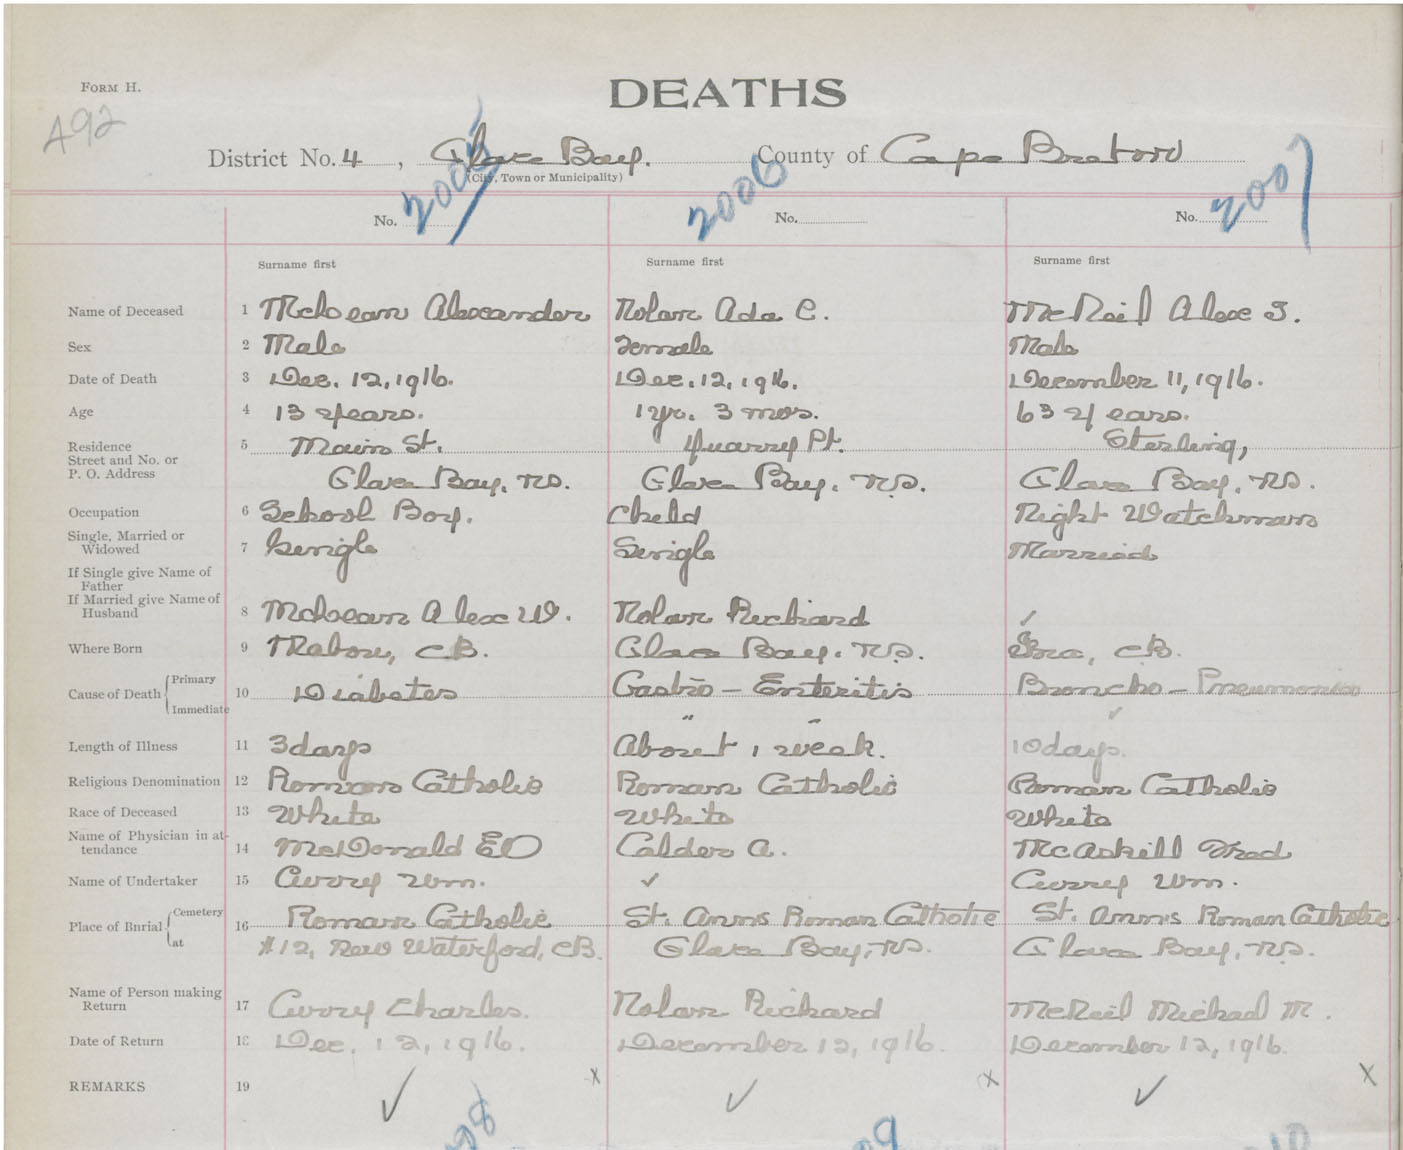 FORM H.
DEATHS
A92
District No. 4, Glace Bay. County of Cape Breton
(City, Town or Municipality)
No. 2005 No. 2006 No. 2007
Surname first Surname first Surname first
Name of Deceased 1 McLean Alexander Nolan Ada C. McNeil Alex J.
Sex 2 Male Female Male
Date of Death 3 Dec. 12, 1916. Dec. 12, 1916. December 11, 1916.
Age 4 13 years. 1 yr. 3 mos. 63 years.
Residence 5 Main St. Quarry Pt. Sterling,
Street and No. or
P. O. Address Glace Bay, NS. Glace Bay, NS. Glace Bay, NS.
Occupation 6 School Boy. Child Night Watchman
Single, Married or
Widowed 7 Single Single Married
If Single give Name of
Father
If Married give Name of
Husband 8 McLean Alex W. Nolan Richard ✓
Where Born 9 Mabou, CB. Glace Bay, NS. CB.
Cause of Death { Primary
10 Diabetes Gastro - Enteritis Broncho - Pneumonia
Immediate " " ✓
Length of Illness 11 3 days About 1 week. 10 days.
Religious Denomination 12 Roman Catholic Roman Catholic Roman Catholic
Race of Deceased 13 White White White
Name of Physician in at-
tendance 14 McDonald EO Calder A. McAskill Fred
Name of Undertaker 15 Curry Wm. ✓ Curry Wm.
Place of Burial { Cemetery 16 Roman Catholic St. Anns Roman Catholic St. Anns Roman Catholic
at #12, New Waterford, CB. Glace Bay, NS. Glace Bay, NS.
Name of Person making
Return 17 Curry Charles. Nolan Richard McNeil Michael M.
Date of Return 18 Dec. 12, 1916. December 12, 1916. December 12, 1916.
REMARKS 19 ✓ x ✓ x ✓ x